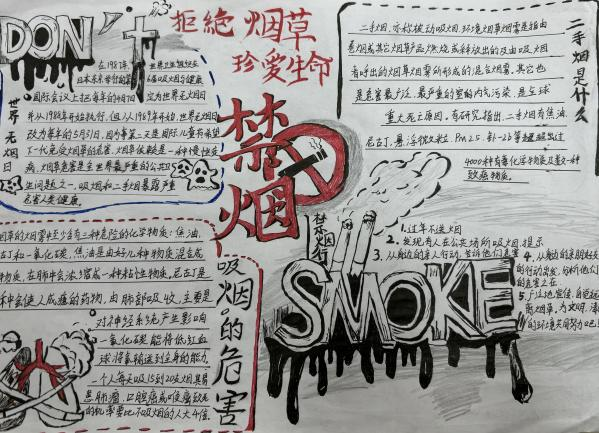 DON't
拒绝烟草
珍爱生命
世界无烟日
在1987年世界卫生组织在
日本东京举行的第6届吸烟与健康
国际会议上把每年的4月7日定为世界无烟日
并从1988年开始执行,但从1989年开始,世界无烟日
改为每年的5月31日,因为第二天是国际儿童节希望
下一代免受烟草的危害,烟草依赖是一种慢性疾
病,烟草危害是全世界最严重的公共卫
生问题之一,吸烟和二手烟暴露严重
危害人类健康。
禁烟
二手烟是什么
二手烟,亦称被动吸烟,环境烟草烟雾是指由
卷烟或其它烟草产品燃烧或释放出的及由吸烟
者呼出的烟草烟雾所形成的混合烟雾,其它也
是危害最广泛、最严重的室内空气污染,是全球
重大死亡原因,有研究指出,二手烟有焦油、
尼古丁、悬浮微粒、Pm2.5、
4000种有害化学物质及数十种
致癌物质。
吸烟的危害
烟草的烟雾中至少含有三种危险的化学物质:焦油,
尼古丁和一氧化碳,焦油是由好几种物质混合成
物质,在肺中会浓缩成一种粘性物质,尼古丁是
种会使人成瘾的药物,由肺部吸收,主要是
对神经系统产生影响
一氧化碳能降低红血
球将氧输送到全身的能力
一个人每天吸15到20支烟,其易
患肺癌,口腔癌或喉癌致死
的机率要比不吸烟的人大14倍。
禁烟行
1.过年不送烟
2.发现有人在公共场所吸烟,提示
3.从身边的亲人行动,告诉他们危害
4.从身边的亲朋好友
的行动出发,告诉他们吸烟
的危害之处
SMOKE